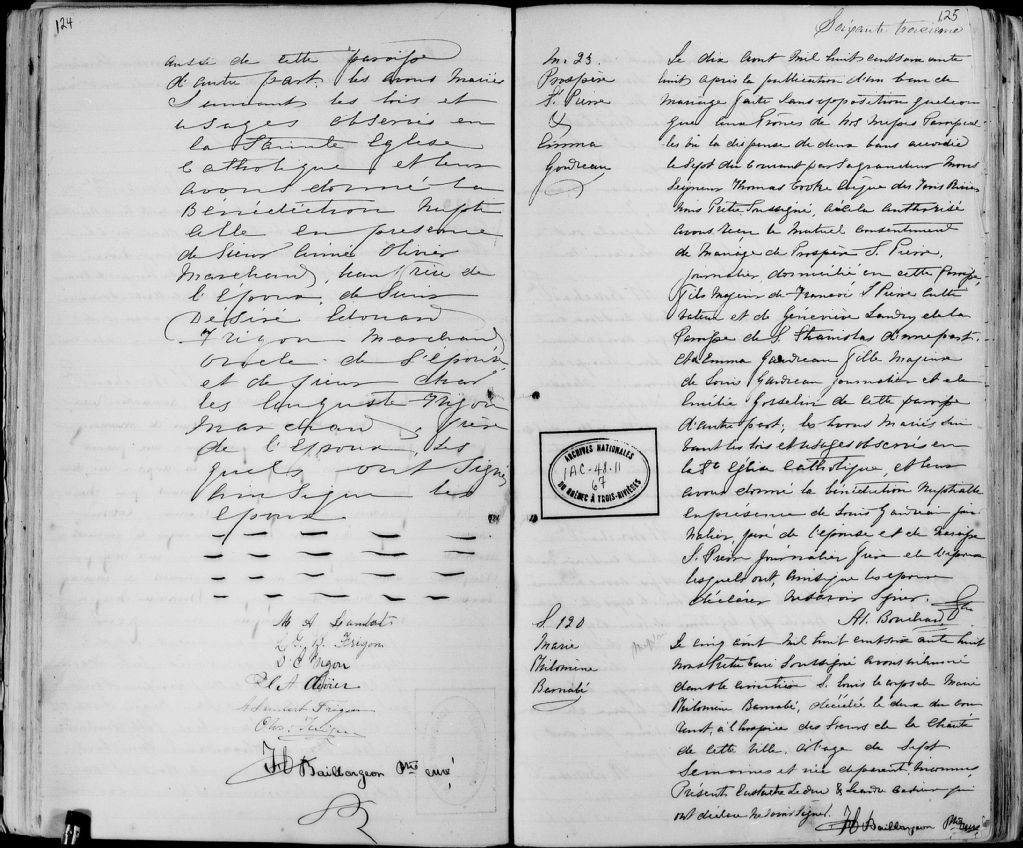 124
de cette paroisse
d'autre part les avons Mariés
les lois et
usages observés en
la Sainte Eglise
Catholique et leur
avons donné la
Bénédiction Nupti
alle en presence
de Sieur Aimé Olivier
Marchand, beau frère de
l'Epoux, de Sieur
Désiré Edouard
Frigon Marchand
oncle de l'Epoux
et de Sieur Char
les Auguste Frigon
Marchand, frère
de l'Epoux, les
quels ont Signé
ainsi que les
Epoux
M A Lambert
Frigon
D E Frigon
A Olivier
Lambert Frigon
Chs. Frigon
Baillargeon Ptre curé
125
Soixante troisième
M. 23.
Prospère
St. Pierre
&
Emma
Gaudreau
Le dix aout Mil huit cent soixante
huit après la publication d'un ban de
Mariage faite sans opposition quelcon
que aux Prônes de nos Messes Paroissia
les vu la dispense de deux bans accordée
le sept du courant par sa grandeur Mon
Seigneur Thomas Cooke évêque des Trois Rivières
Nous Prêtre Soussigné, à cela authorisé
avons reçu le Mutuel consentiment
de Mariage de Prospère St. Pierre,
Journalier domicilié en cette Paroisse,
Fils Majeur de Francois St Pierre Culti
vateur et de Geneviève Landry de la
Paroisse de St. Stanislas d'une part.
et Emma Gaudreau Fille Majeure
de Louis Gaudreau Journalier et de
Emélie Gosselin de cette paroisse
d'autre part; les avons Mariés Sui
vant les lois et usages observés en
la Ste Eglise Catholique et leur
avons donné la bénédiction Nuptialle
en présence de Louis Gaudreau Jour
nalier, père de l'épouse et de
St. Pierre Journalier frère de l'époux
lesquels ont, ainsi que les époux
déclarés ne savoir Signer.
ARCHIVES NATIONALES
1AC-48-11
67
DU QUÉBEC À TROIS-RIVIÈRES
S. 120
Marie
Philomène
Barnabé
Le cinq aout Mil huit cent soixante huit
Nous Prêtre Curé Soussigné avons inhumé
dans le cimetière St. Louis le corps de Marie
Philomène Barnabé, décédée le deux du cou
rant, à l'hospice des Sœurs de la Charité
de cette Ville, à l'age de Sept
Semaines et née de parents Inconnus,
Présents &
ont déclaré ne savoir signer.
Baillargeon Ptre curé